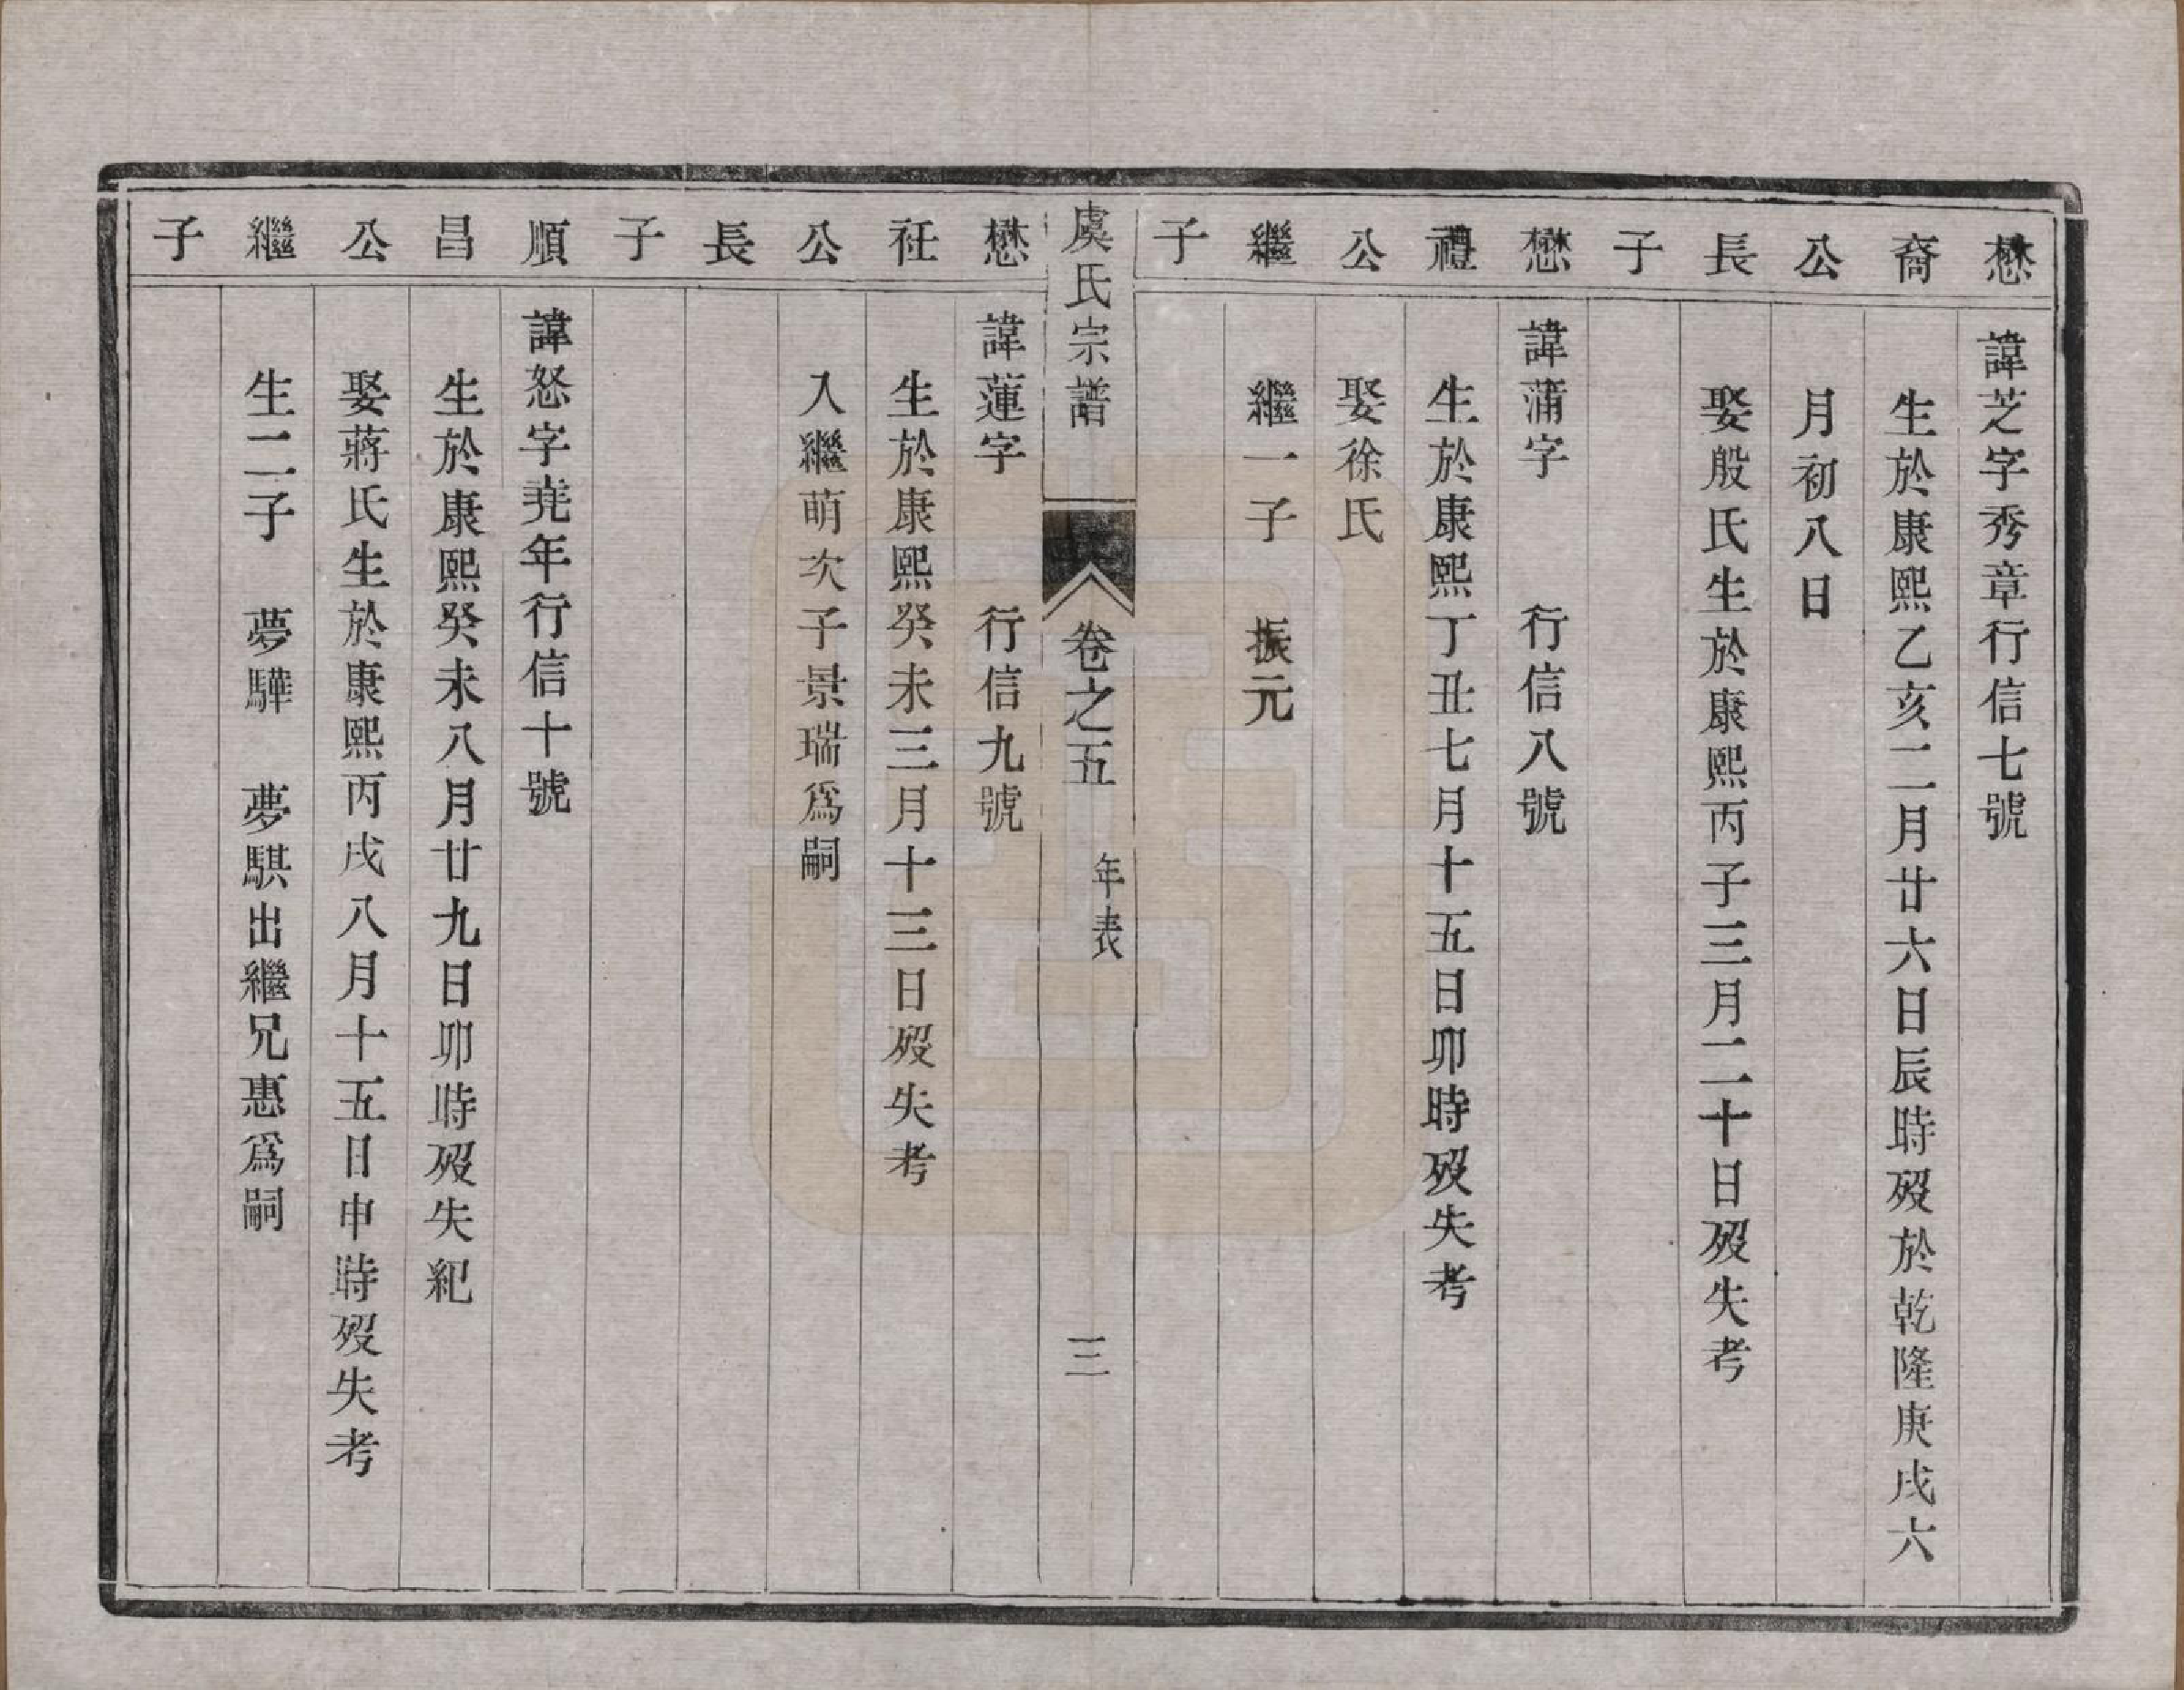 懋 諱芝字秀章行信七號
裔 生於康熙乙亥二月廿六日辰時歿於乾隆庚戌六
公 月初八日
長 娶殷氏生於康熙丙子三月二十日歿失考
子
懋 諱蒲字 行信八號
禮 生於康熙丁丑七月十五日卯時歿失考
公 娶徐氏
繼 繼一子 振元
子
虞氏宗譜 卷之五 年表 三
懋 諱蓮字 行信九號
社 生於康熙癸未三月十三日歿失考
公 入繼萌次子景瑞爲嗣
長
子
順 諱怒字堯年行信十號
昌 生於康熙癸未八月廿九日卯時歿失紀
公 娶蔣氏生於康熙丙戌八月十五日申時歿失考
繼 生二子 夢驊 夢騏出繼兄惠爲嗣
子